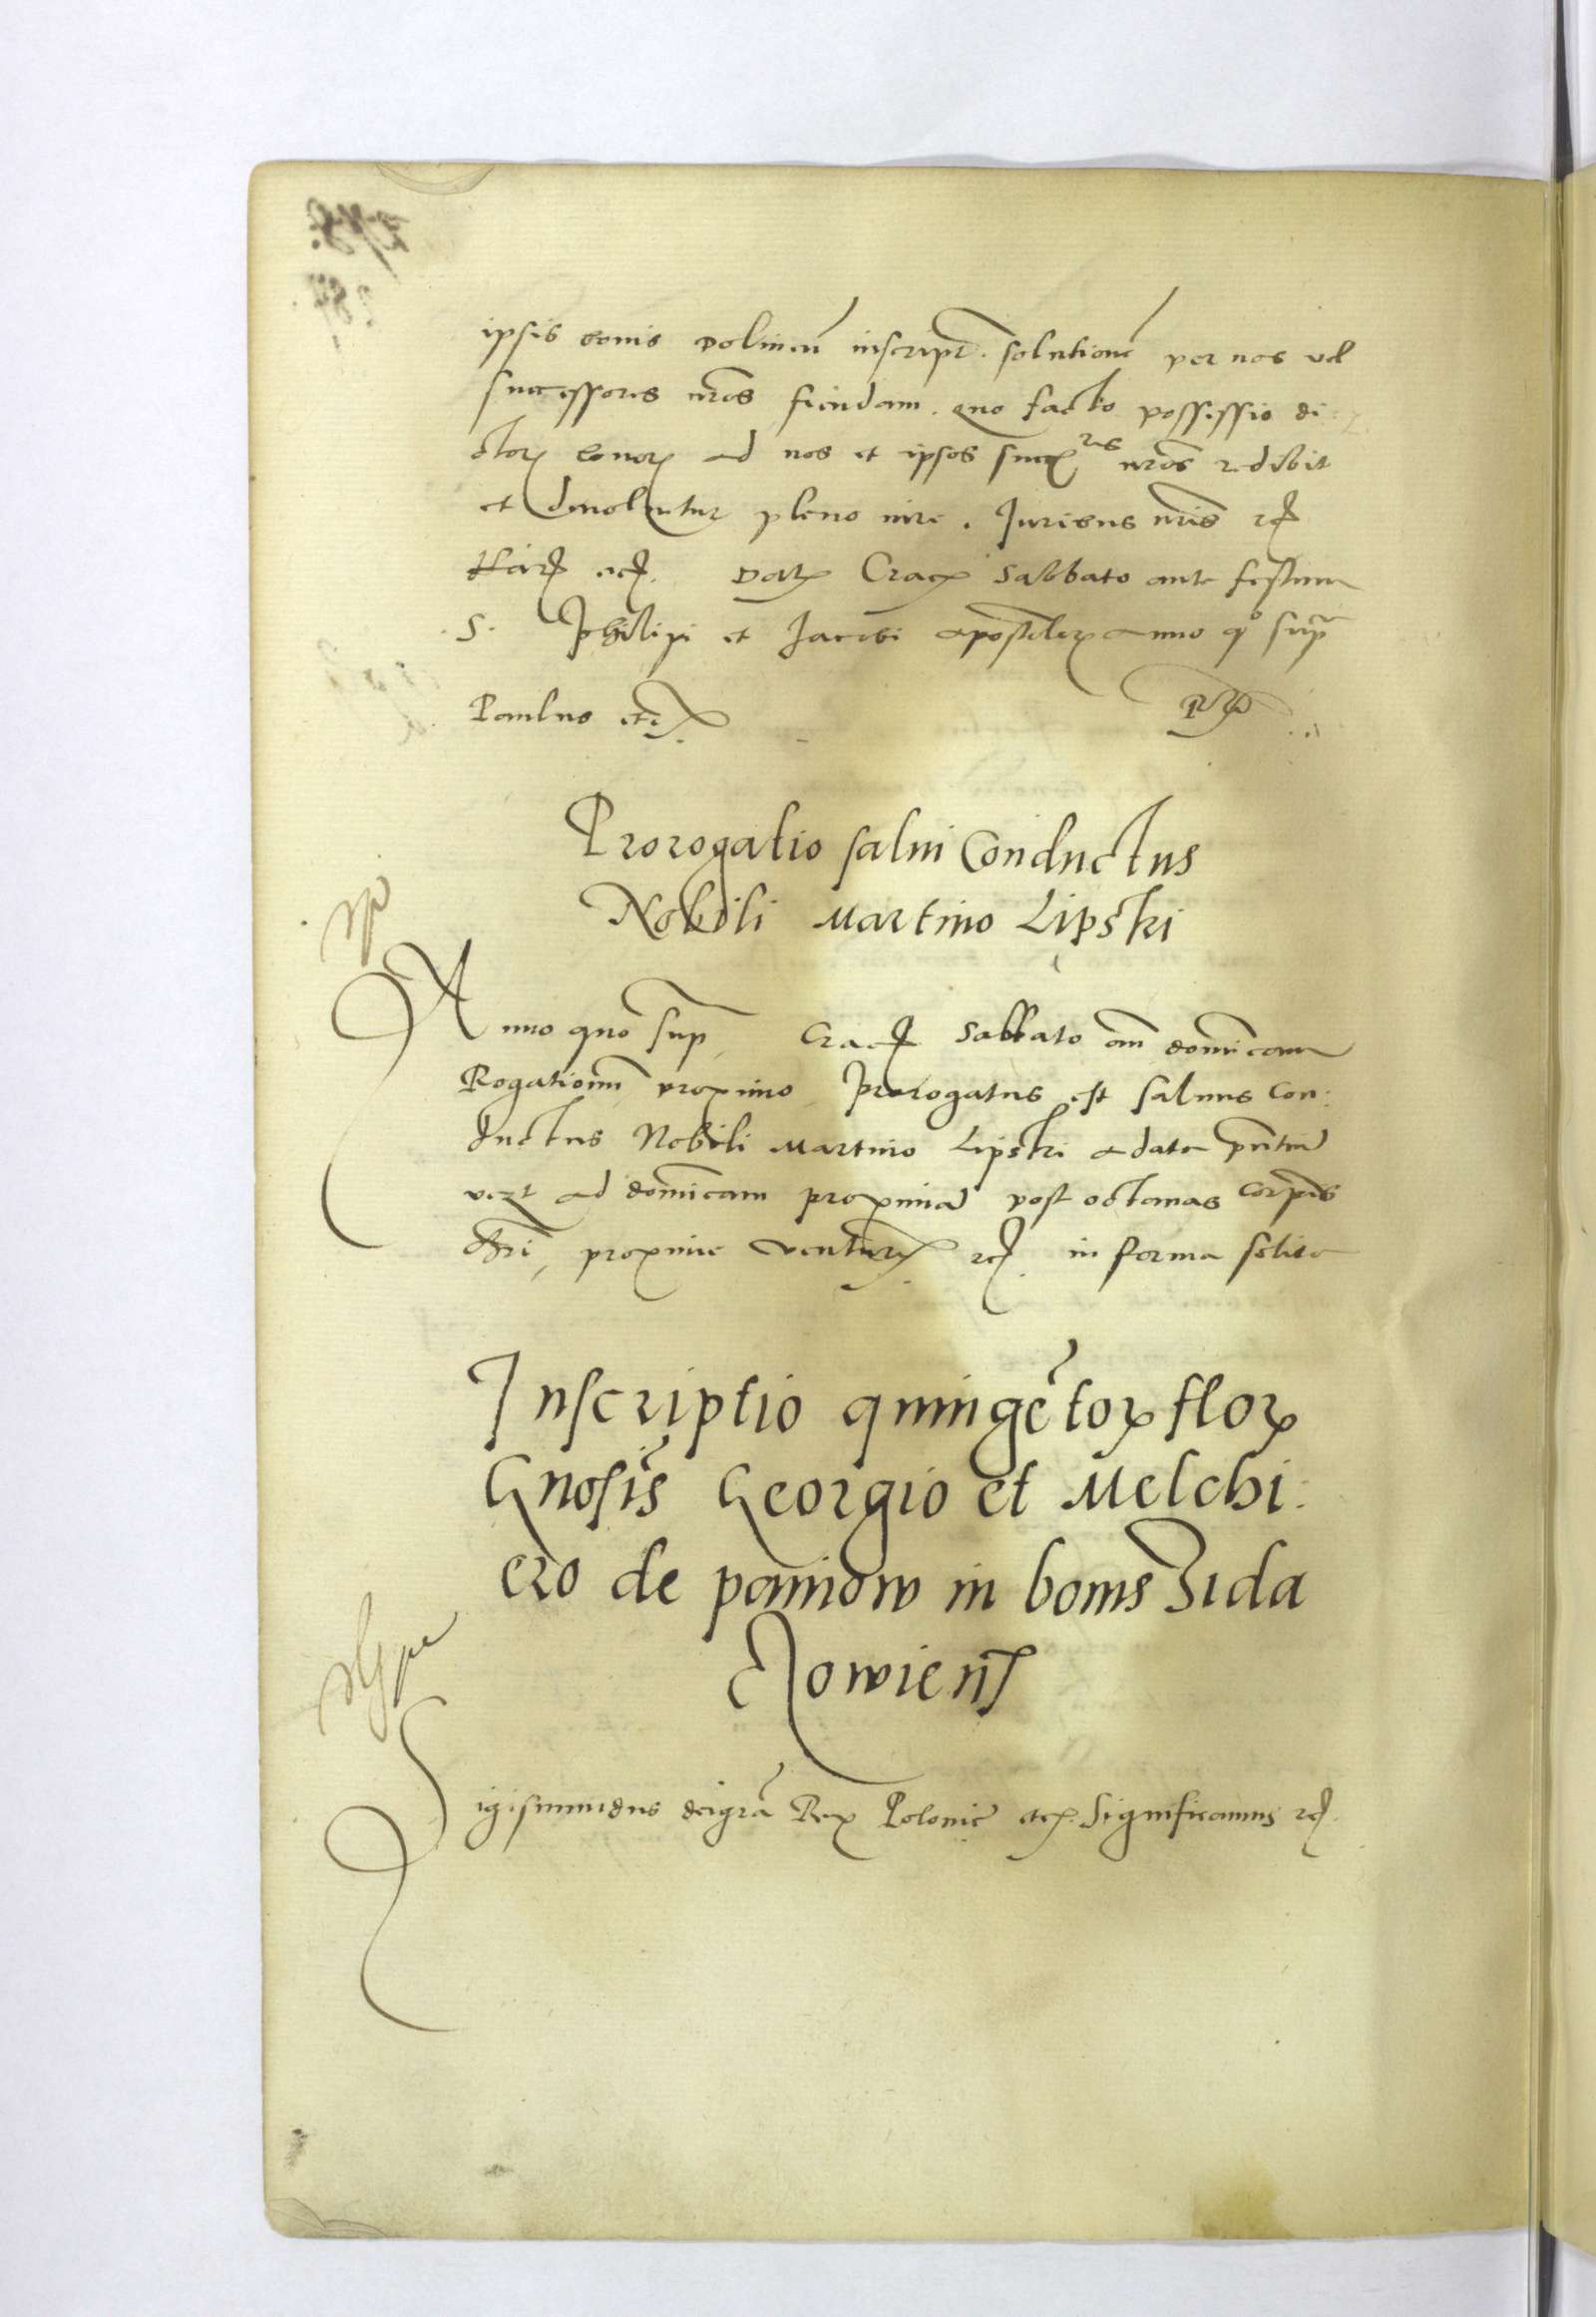 ipsis bonis Dolinen̄ inscript. solutionē per nos vel
successores nr̄os fiendam. quo facto possessio di
ctorꝝ bonorꝝ ad nos et ipsos succ̄res nr̄os redibit
et devoluetur pleno iure. Juribus nr̄is etc̄
etc̄. Datꝝ Crac̄ Sabbato ante festum
S. Philipi et Jacobi apostolorꝝ anno qͦ supͣ
Paulus etc̄
Prorogatio salui Conductus
Nobili Martino Lipski
Anno quo supͣ Crac̄ Sabbato an̄ dominicam
Rogationum proximo Prorogatus est saluus Con:
ductus Nobili Martino Lipski a data pn̄tium
ad dominicam proximā post octauas Corpꝭis
Chri̅, proxime venturꝝ etc̄. in forma solita
Inscriptio quingētorꝝ florꝝ
Gnosis̄ Georgio et Melchi:
ero de paniow in bonis Zida
czowien̄
Sigismundus dei gr̄a Rex Polonie etc̄. Significamus etc̄.